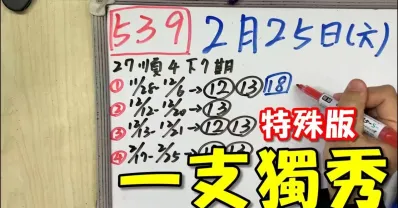 539 2月25日(六)
27順4下7期
① 11/28-12/6→⑫⑬ 18
② 12/12-12/20→⑬
③ 12/13-12/21→⑫⑬
④ 2/17-2/25→
特殊版
一支獨秀